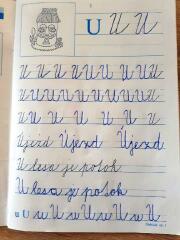 U U U
U U U U U U U U U
U U U U U U U U U U
U U U U U U U U
Újezd Újezd Újezd
U lesa je potok
U lesa je potok
u U u U u U u U u U